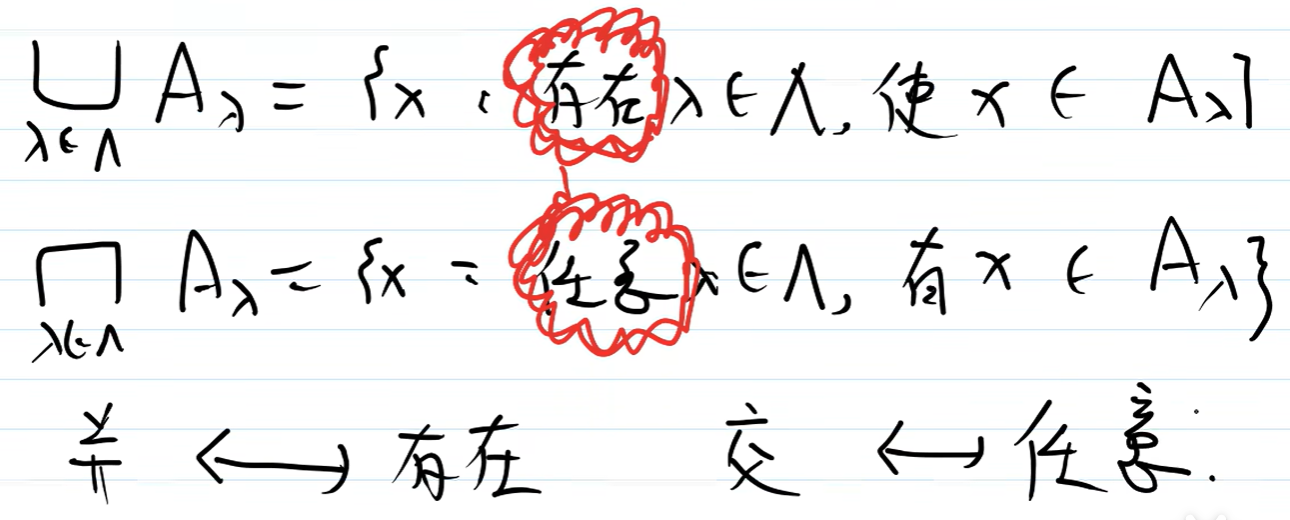 ⋃_{λ∈Λ} A_λ = {x : 存在 λ∈Λ, 使 x ∈ A_λ}
⋂_{λ∈Λ} A_λ = {x : 任意 λ∈Λ, 有 x ∈ A_λ}
并 ⟷ 存在 交 ⟷ 任意.